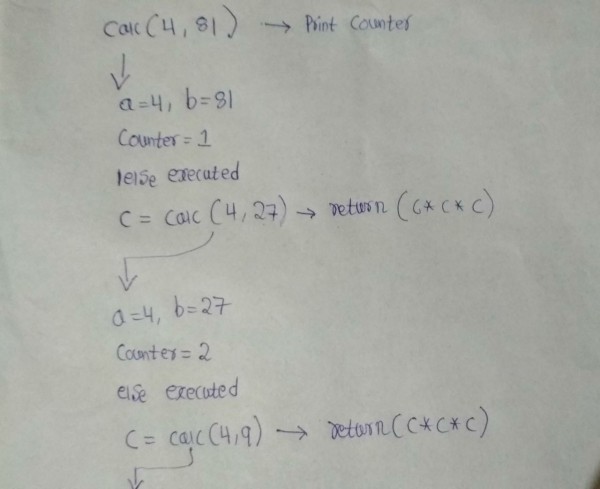 calc(4, 81) → Print Counter
a=4, b=81
Counter = 1
else executed
c = calc (4, 27) → return (c* c* c)
a=4, b=27
Counter = 2
else executed
c = calc(4,9) → return(c*c*c)